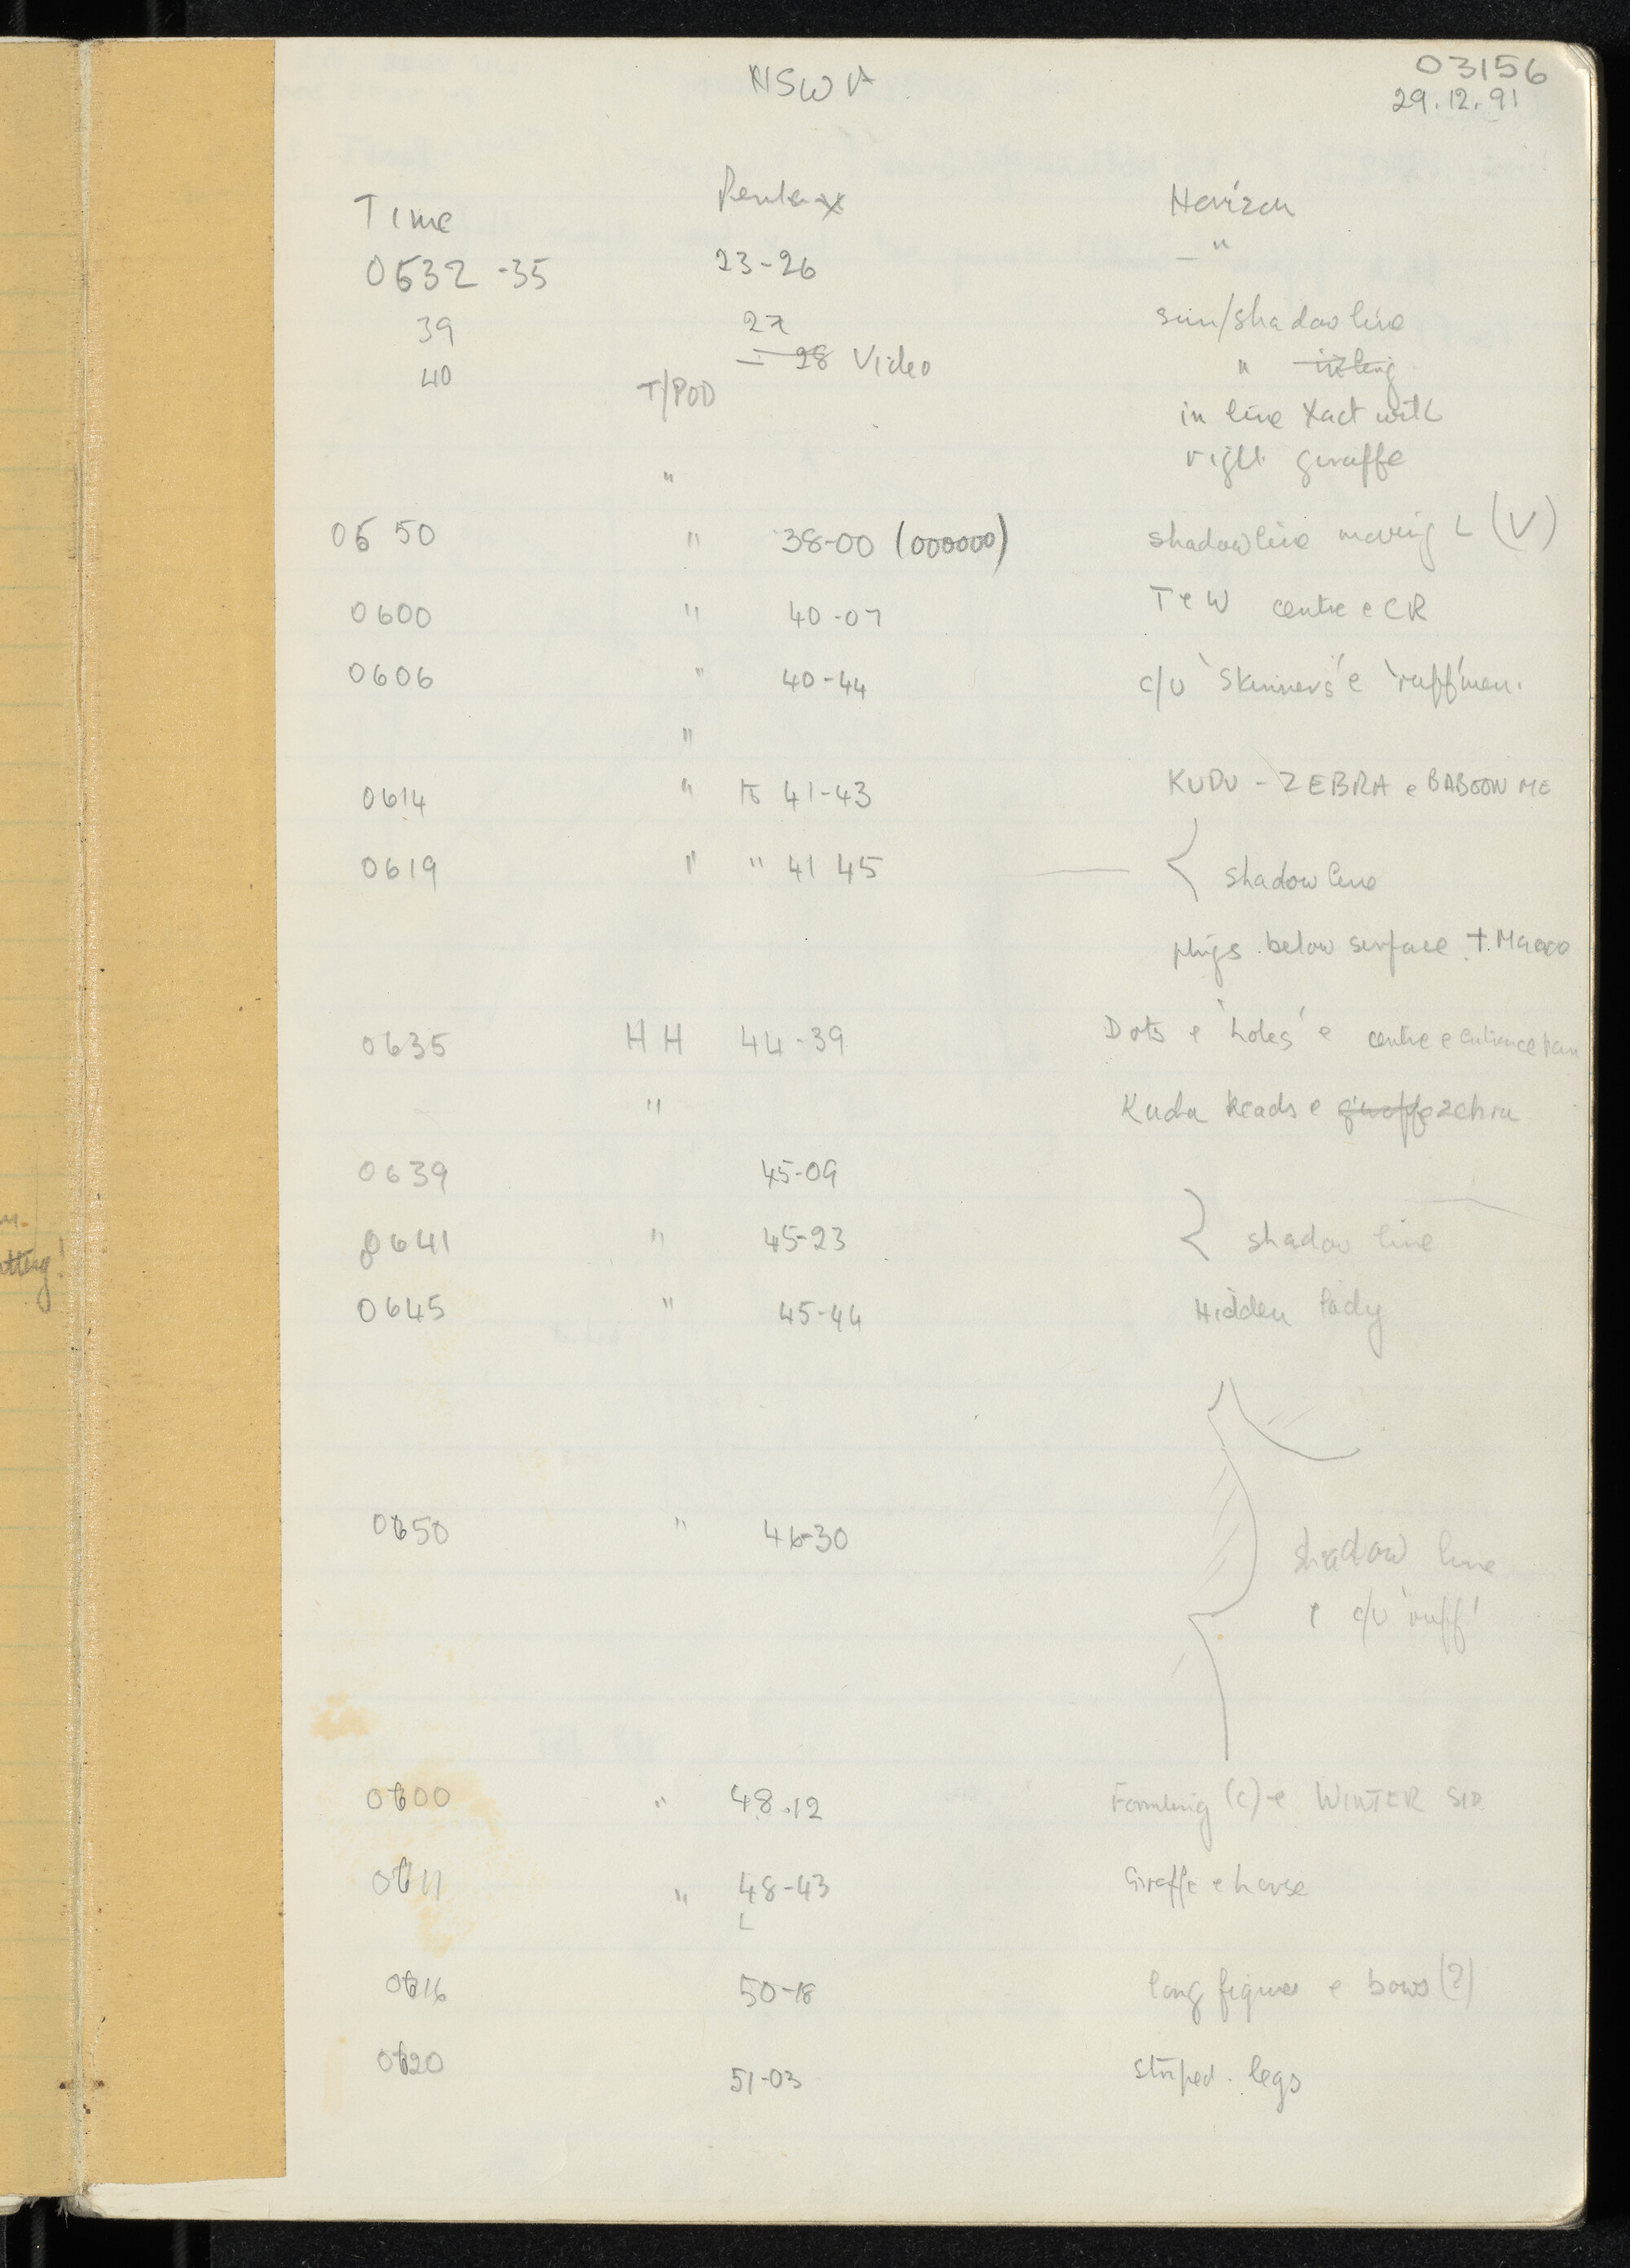 NSWA
03156
29.12.91
Time Pentax Horizon
0532-35 23-26 — "
39 27 sun/shadow line
40 T/POD 28 Video "
in line Xact with
" right giraffe
05 50 " 38-00 (000000) shadow line moving L (V)
0600 " 40-07 T e W centre e CR
0606 " 40-44 c/u 'Skinners' e 'ruff' men.
"
0614 " 41-43 KUDU - ZEBRA e BABOON ME
0619 " " 41 45 { shadow line
below surface + Macro
0635 HH 44-39 Dots e 'holes' e centre e entrance
" Kudu heads e giraffe zebra
0639 45-09
0641 " 45-23 } shadow line
0645 " 45-44 Hidden lady
0650 " 46-30 shadow line
e c/u 'ruff'
0600 " 48.12 (C) e WINTER
0611 " 48-43 Giraffe e horse
L
0616 50-18 long figures e bows (?)
0620 51-03 striped. legs